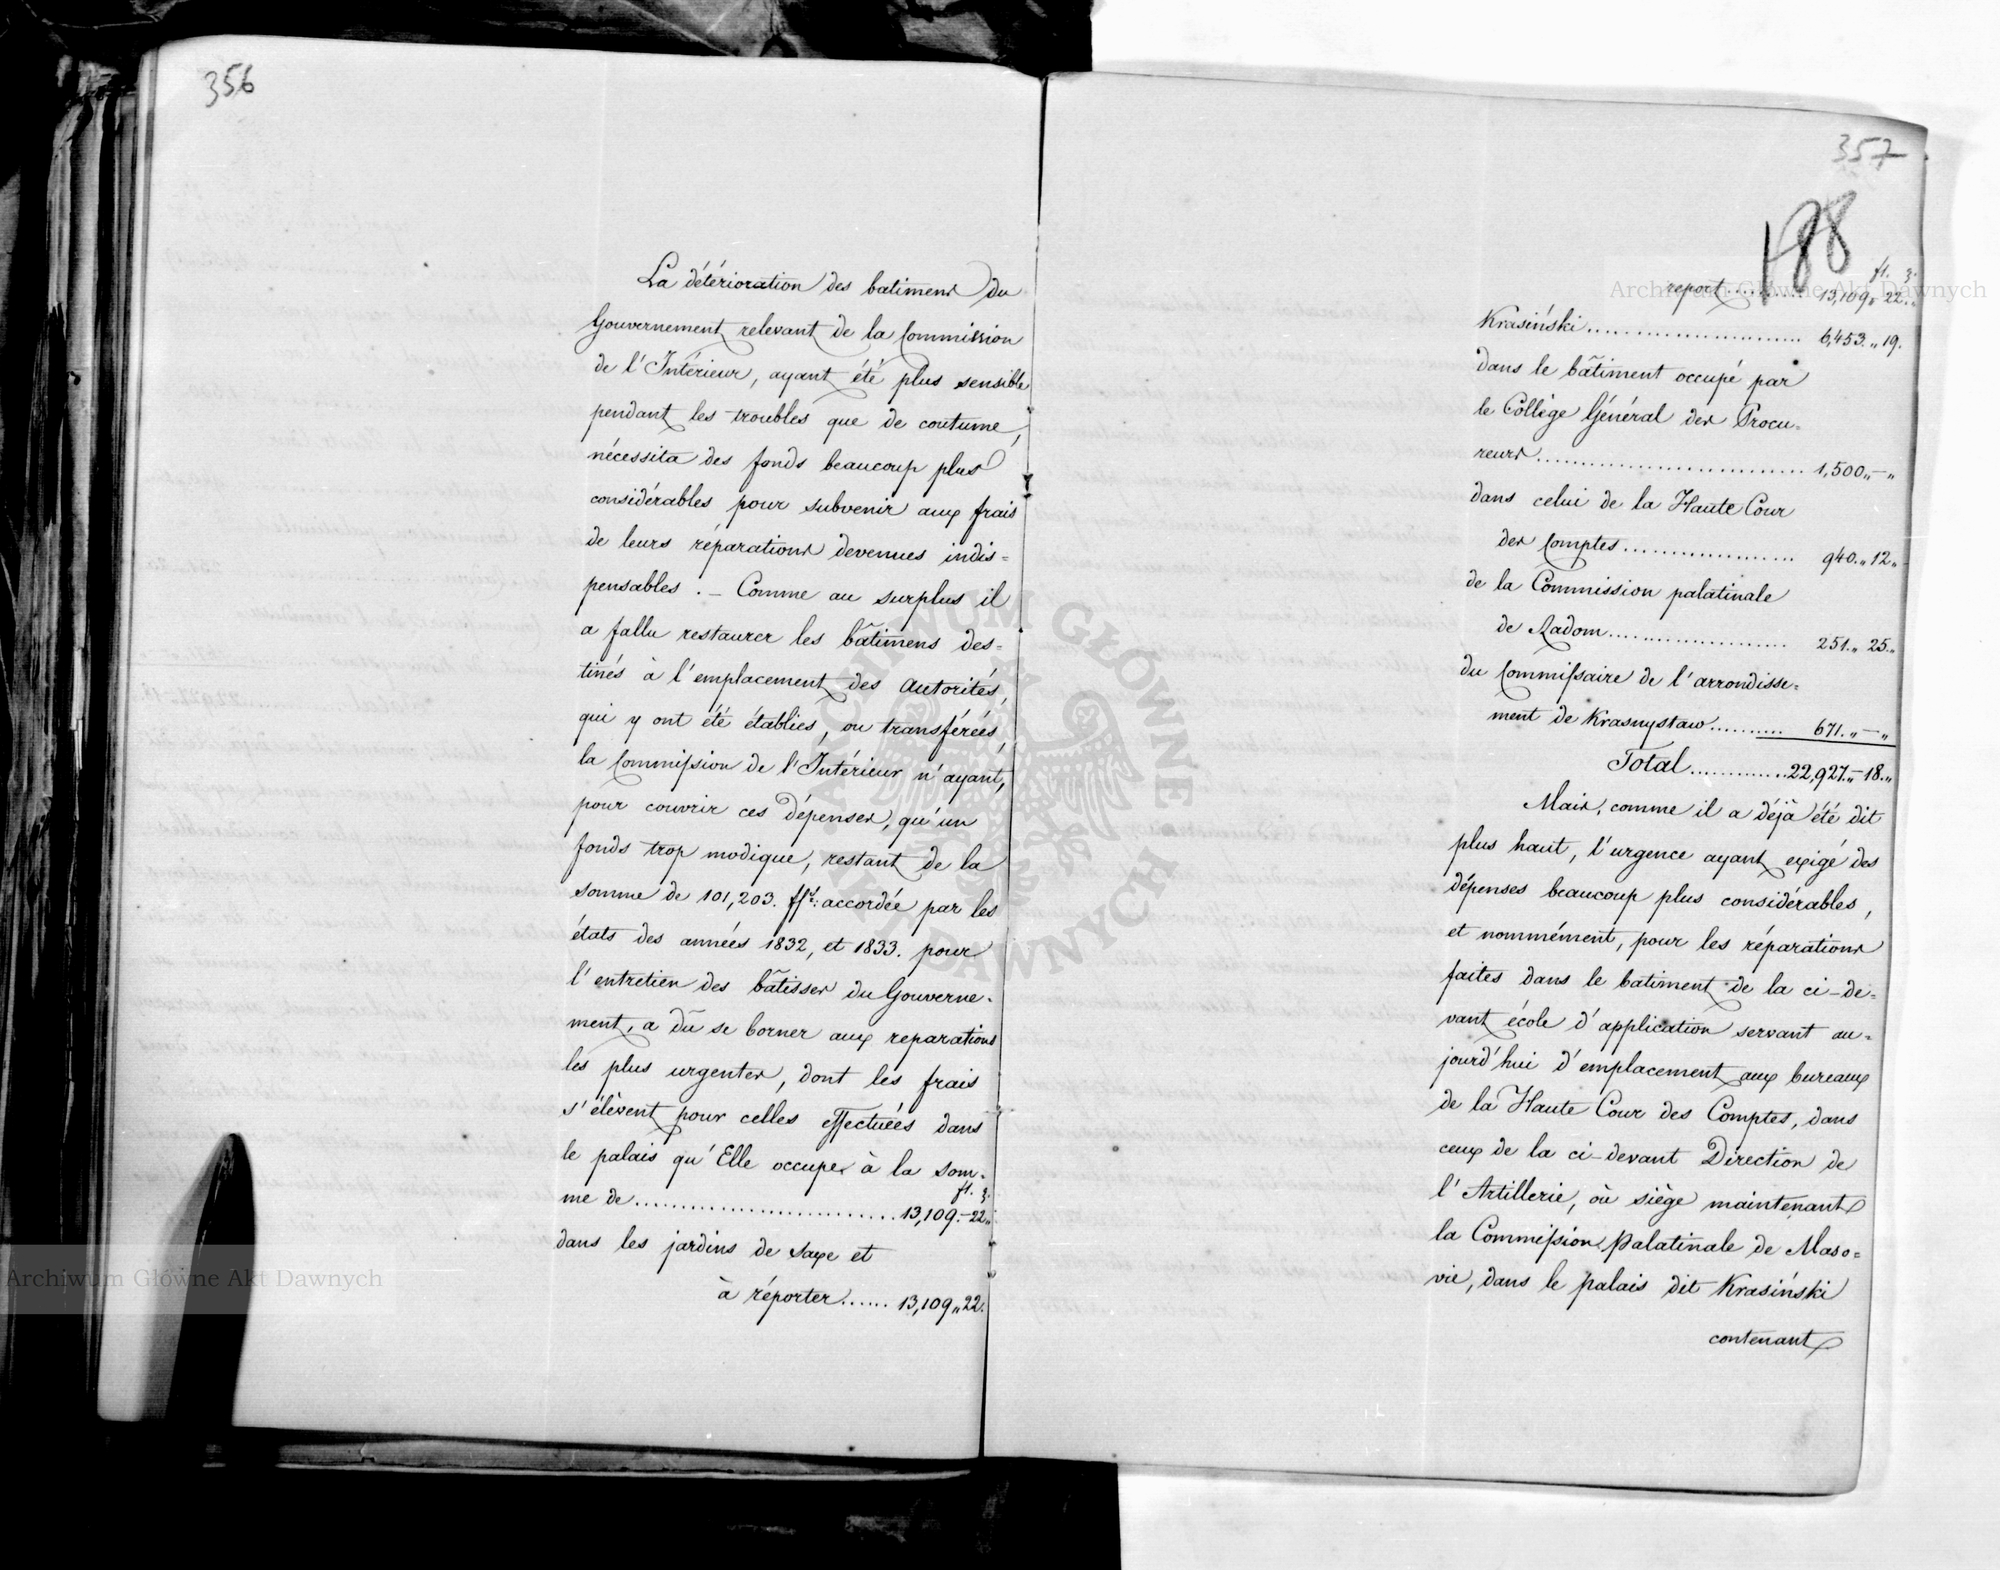 356
La détérioration des batimens du
Gouvernement relevant de la Commission
de l'Intérieur, ayant été plus sensible
pendant les troubles que de coutume,
nécessita des fonds beaucoup plus
considérables pour subvenir aux frais
de leurs réparations devenues indis=
pensables. – Comme au surplus il
a fallu restaurer les bâtimens des=
tinés à l'emplacement des Autorités,
qui y ont été établies, ou transférées,
la Commission de l'Intérieur n'ayant,
pour couvrir ces dépenses, qu'un
fonds trop modique, restant de la
somme de 101,203. ffs: accordée par les
états des années 1832, et 1833. pour
l'entretien des bâtisses du Gouverne=
ment, a dû se borner aux reparations
les plus urgentes, dont les frais
s'élèvent pour celles effectuées dans
le palais qu'Elle occupe, à la som=
fl. g.
me de ........................... 13,109.–22.„
dans les jardins de Saxe et
à réporter ...... 13,109„22.
357
188
fl. g.
report .......... 13,109„22.„
Krasiński ........................ 6,453.„19.
dans le bâtiment occupé par
le Collège Général des Procu=
reurs .............................. 1,500„–„
dans celui de la Haute Cour
des Comptes ................... 940.„12„
de la Commission palatinale
de Radom .................... 251.„25.„
du Commissaire de l'arrondisse=
ment de Krasnystaw .......... 671.„–„
Total ............ 22,927.„–18.„
Mais, comme il a déjà été dit
plus haut, l'urgence ayant exigé des
dépenses beaucoup plus considérables,
et nommément, pour les réparations
faites dans le batiment de la ci-de=
vant école d'application servant au=
jourd'hui d'emplacement aux bureaux
de la Haute Cour des Comptes, dans
ceux de la ci-devant Direction de
l'Artillerie, où siège maintenant
la Commission Palatinale de Maso=
vie, dans le palais dit Krasiński
contenant
Archiwum Główne Akt Dawnych
Archiwum Główne Akt Dawnych
ARCHIWUM GŁÓWNE AKT DAWNYCH